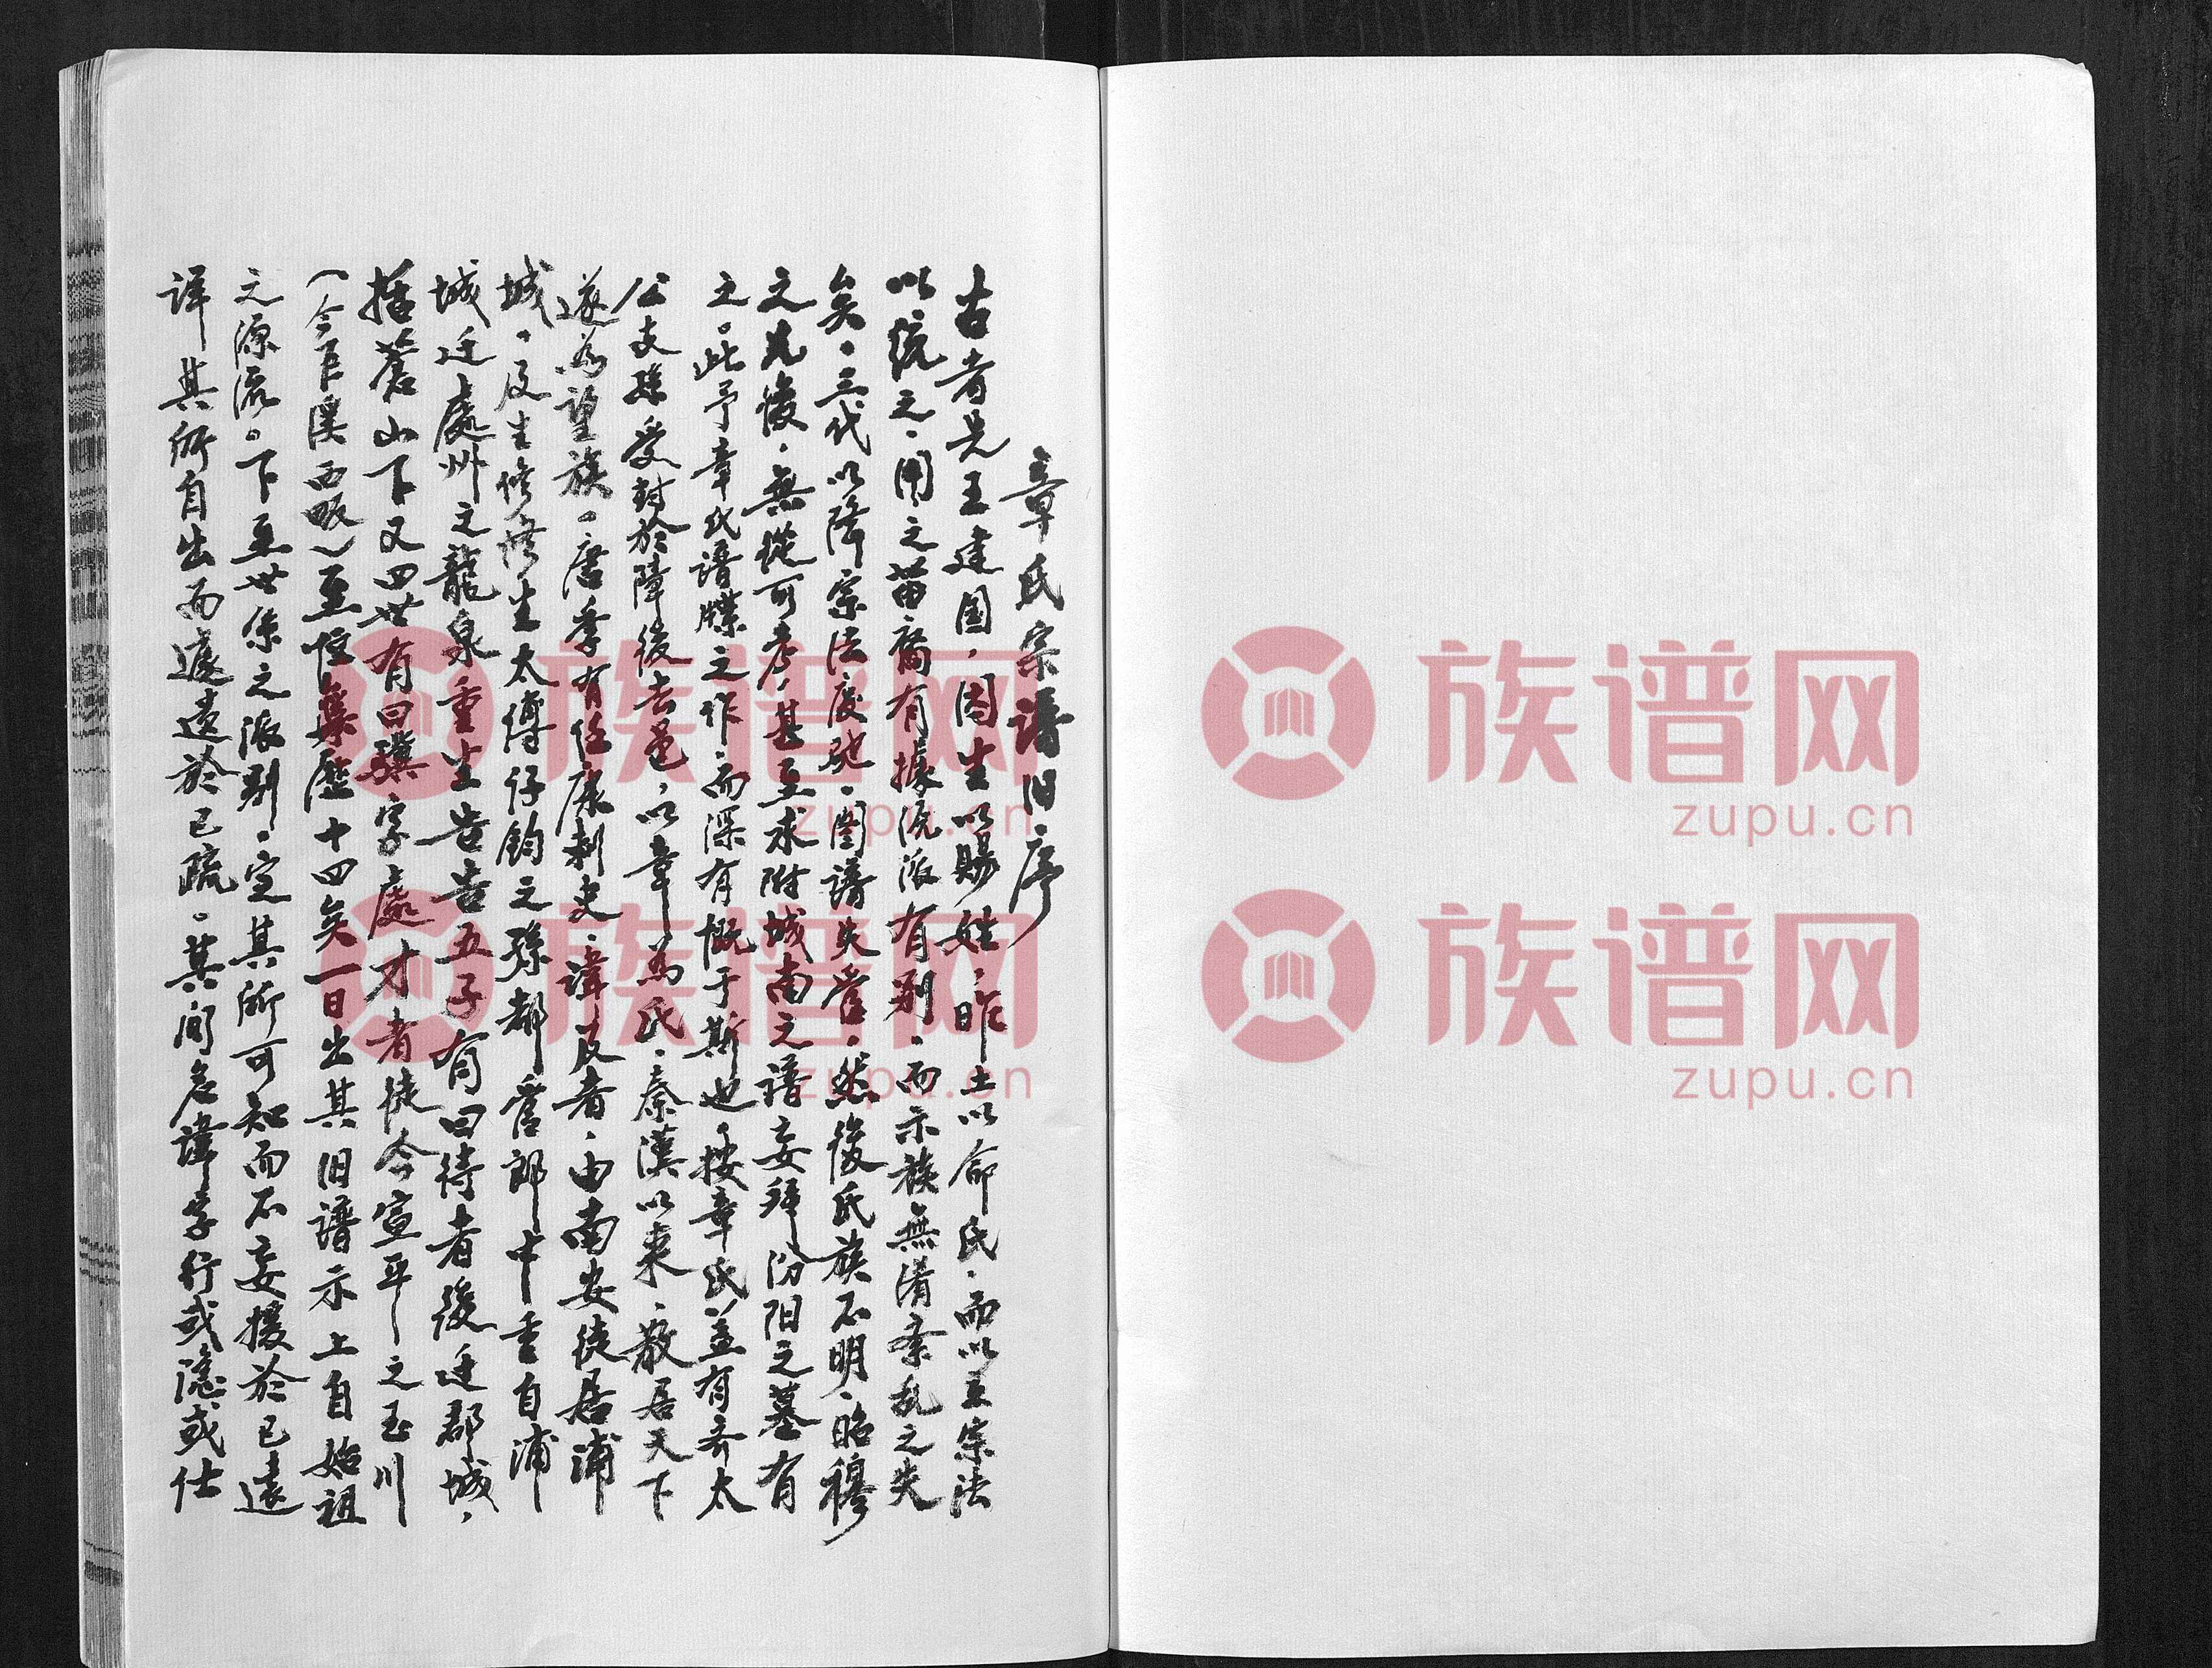 章氏宗譜旧序
古者先王建国，因生以賜姓，胙土以命氏，而以立宗法
以統之，用之苗裔有據，流派有别，而示族無淆紊乱之失
矣。三代以降宗法废弛，图譜失管，然後氏族不明，昭穆
之先後，無從可考，甚至求附城南之譜妄拜汾阳之墓有
之。此予章氏譜牒之作，而深有慨于斯也。按章氏盖有齐太
公支孫受封於障後去邑，以章為氏，秦漢以来，散居天下
遂為望族。唐季有任康刺史，諱及者，由南安徒居浦
城，及生修，修生太傅仔鈞之孫都官郎中重自浦
城迁處州之龍泉重生告告五子有曰待者後迁郡城，
括蒼山下又四世有曰驥字處才者徒今宣平之玉川
（今下溪西畈）至侄集歷十四矣一日出其旧譜示上自始祖
之源流。下至世系之派别。定其所可知而不妄援於已遠
詳其所自出而遽遺於已疏。其间名諱字行或隐或仕
族谱网
zupu.cn
族谱网
zupu.cn
族谱网
zupu.cn
族谱网
zupu.cn